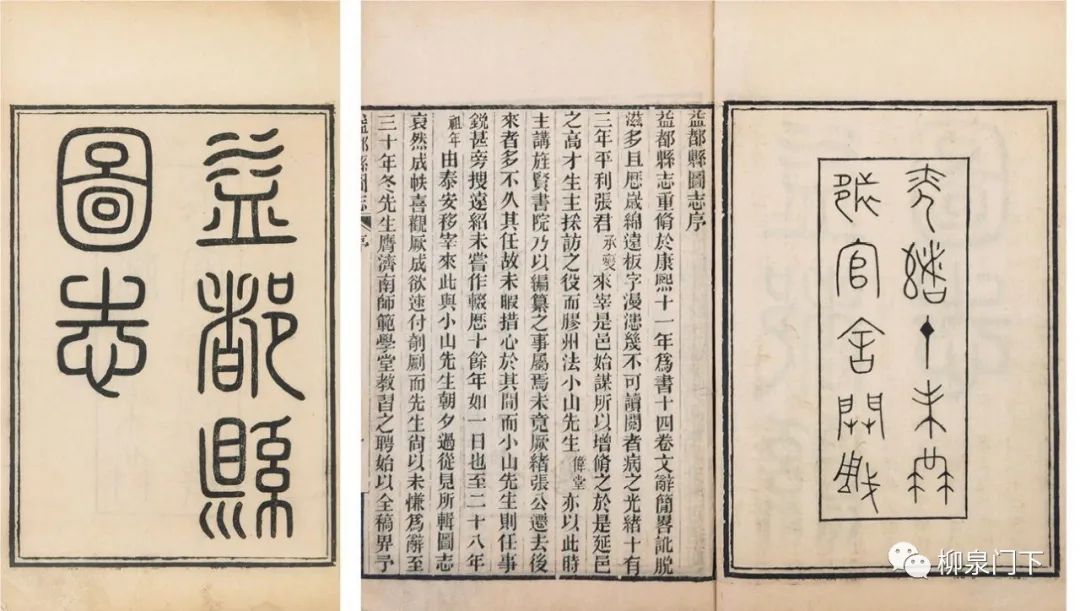 益都縣
圖志
光緒
未
官舍開
益都縣圖志序
益都縣志重脩於康熙十一年爲書十四卷文辭簡畧訛脫
滋多且歷歲綿遠板字漫漶幾不可讀閱者病之光緒十有
三年平利張君承燮來宰是邑始謀所以增脩之於是延邑
之高才生主採訪之役而膠州法小山先生偉堂亦以此時
主講旌賢書院乃以編纂之事屬焉未竟厥緒張公遷去後
來者多不久其任故未暇措心於其間而小山先生則任事
銳甚旁搜遠紹未嘗作輟歷十餘年如一日也至二十八年
祖年由泰安移宰來此與小山先生朝夕過從見所輯圖志
裒然成帙喜觀厥成欲速付剞劂而先生尙以未慊爲辭至
三十年冬先生膺濟南師範學堂教習之聘始以全稿畀予
益都縣圖志 序
柳泉门下